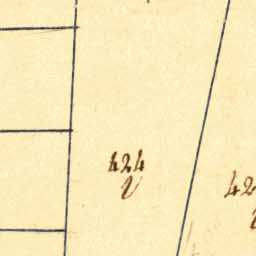 424
V
42